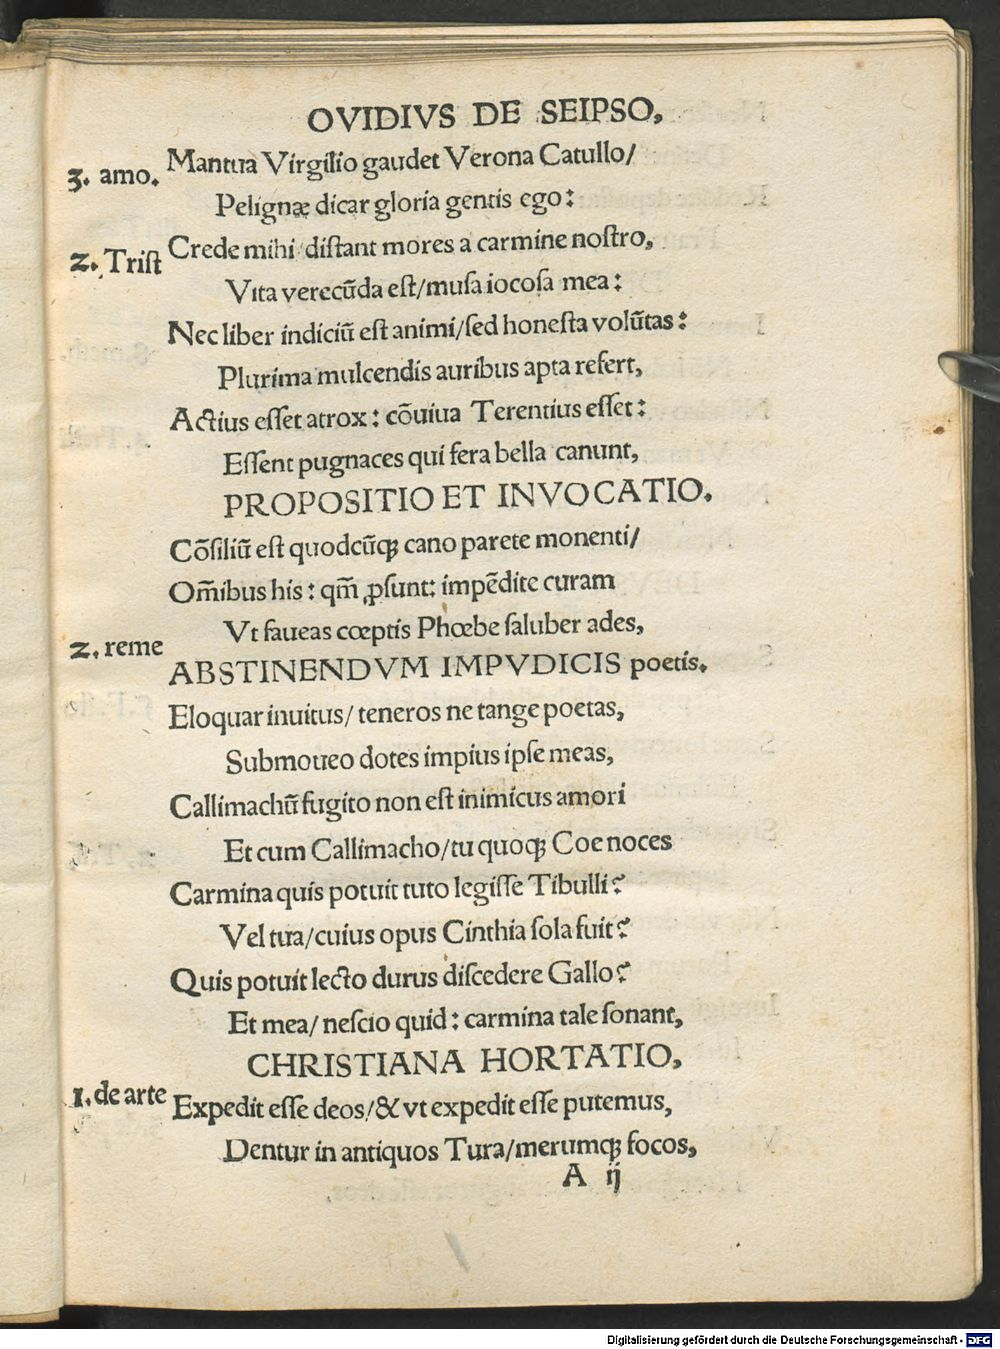 OVIDIVS DE SEIPSO,
3. amo. Mantua Virgilio gaudet Verona Catullo/
Pelignæ dicar gloria gentis ego:
2. Trist Crede mihi distant mores a carmine nostro,
Vita verecūda est/musa iocosa mea:
Nec liber indiciū est animi/sed honesta volūtas:
Plurima mulcendis auribus apta refert,
Actius esset atrox: cōuiua Terentius esset:
Essent pugnaces qui fera bella canunt,
PROPOSITIO ET INVOCATIO.
Cōsiliū est quodcūqꝫ cano parete monenti/
Om̄ibus his: qm̄ ꝓsunt: impēdite curam
Vt faueas cœptis Phœbe saluber ades,
2. reme
ABSTINENDVM IMPVDICIS poetis.
Eloquar inuitus/ teneros ne tange poetas,
Submoueo dotes impius ipse meas,
Callimachū fugito non est inimicus amori
Et cum Callimacho/tu quoqꝫ Coe noces
Carmina quis potuit tuto legisse Tibulli?
Vel tua/cuius opus Cinthia sola fuit?
Quis potuit lecto durus discedere Gallo?
Et mea/ nescio quid: carmina tale sonant,
CHRISTIANA HORTATIO,
1. de arte Expedit esse deos/& vt expedit esse putemus,
Dentur in antiquos Tura/merumqꝫ focos,
A ij
Digitalisierung gefördert durch die Deutsche Forschungsgemeinschaft - DFG